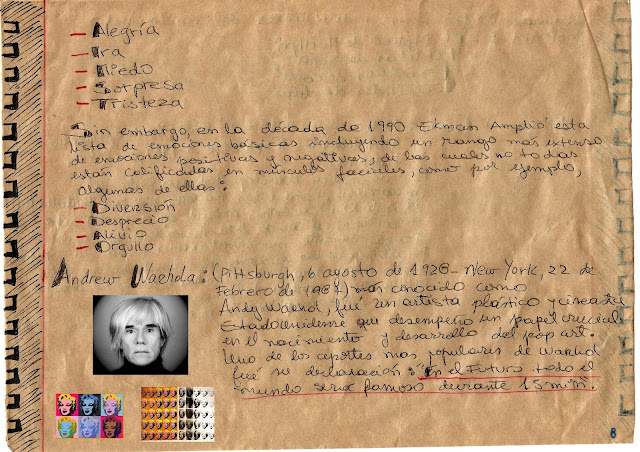 – Alegría
– Ira
– Miedo
– Sorpresa
– Tristeza
Sin embargo, en la década de 1990 Ekman Amplió esta
lista de emociones básicas incluyendo un rango mas extenso
de emociones positivas y negativas, de las cuales no todas
están codificadas en músculos faciales, como por ejemplo,
algunas de ellas:
– Diversión
– Desprecio
– Alivio
– Orgullo
Andrew Warhola: (Pittsburgh, 6 agosto de 1928 – New York, 22 de
Febrero de 1987) mas conocido como
Andy Warhol, fué un artista plástico y cineasta
Estadounidense que desempeño un papel crucial
en el nacimiento y desarrollo del pop art.
Uno de los aportes mas populares de Warhol
fué su declaración: "en el Futuro todo el
mundo sera famoso durante 15 min".
8